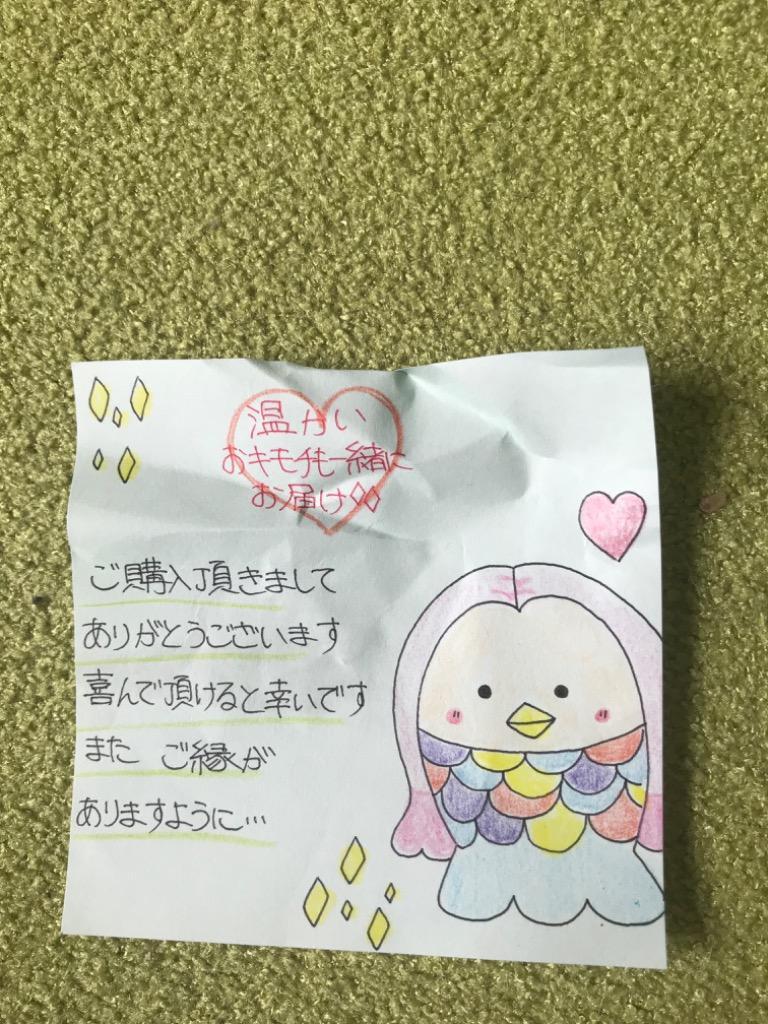 温かい
おキモチも一緒に
お届け
ご購入頂きまして
ありがとうございます
喜んで頂けると幸いです
また ご縁が
ありますように…